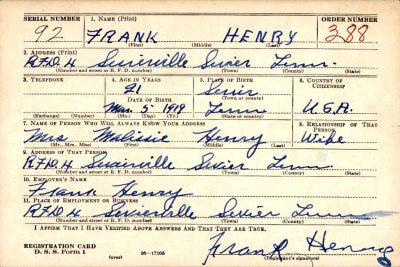 SERIAL NUMBER 1. NAME (Print) ORDER NUMBER
92 FRANK HENRY 388
(First) (Middle) (Last)
2. ADDRESS (Print)
R.F.D. 4 Sevierville Sevier Tenn.
(Number and street or R. F. D. number) (Town) (County) (State)
3. TELEPHONE 4. AGE IN YEARS 5. PLACE OF BIRTH 6. COUNTRY OF CITIZENSHIP
21 Sevier
DATE OF BIRTH (Town or county)
Mar. 5- 1919 Tenn U.S.A.
(Exchange) (Number) (Mo.) (Day) (Yr.) (State or country)
7. NAME OF PERSON WHO WILL ALWAYS KNOW YOUR ADDRESS 8. RELATIONSHIP OF THAT PERSON
Mrs Malissie Henry Wife
(Mr., Mrs., Miss) (First) (Middle) (Last)
9. ADDRESS OF THAT PERSON
R.F.D. 4 Sevierville Sevier Tenn
(Number and street or R. F. D. number) (Town) (County) (State)
10. EMPLOYER'S NAME
Frank Henry
11. PLACE OF EMPLOYMENT OR BUSINESS
R.F.D. 4 Sevierville Sevier Tenn
(Number and street or R. F. D. number) (Town) (County) (State)
I AFFIRM THAT I HAVE VERIFIED ABOVE ANSWERS AND THAT THEY ARE TRUE.
REGISTRATION CARD
D. S. S. Form 1 (over) 16—17105 Frank Henry
(Registrant's signature)